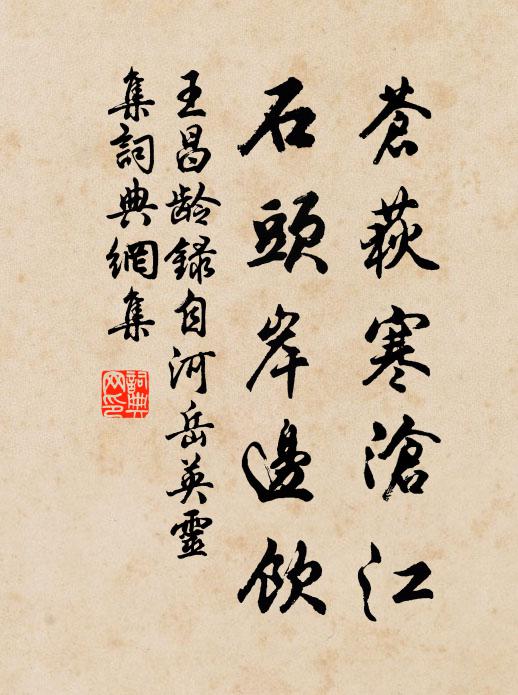 蒼荻寒滄江
石頭岸邊飲
王昌齡錄自河岳英靈
集詞典網集
詞典
网印